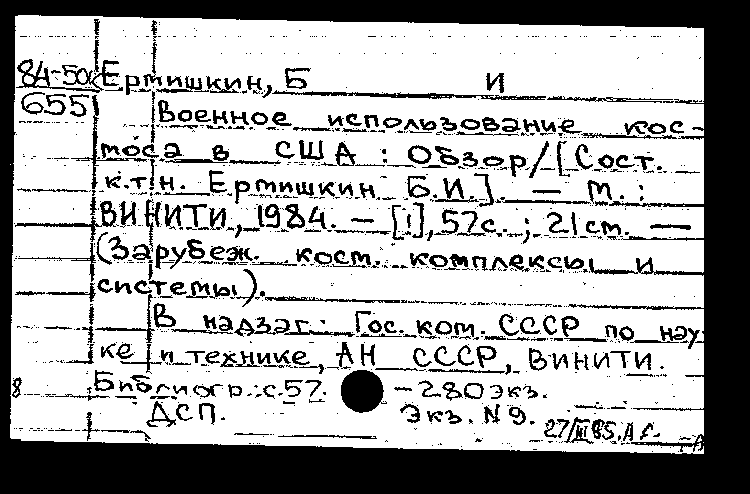 84-50к Ермишкин, Б И
6551 Военное использование кос-
моса в США : Обзор/[Сост.
к.т.н. Ермишкин Б.И.]. — М. :
ВИНИТИ, 1984. — [1], 57с. ; 21см. —
(Зарубеж. косм. комплексы и
системы).
В надзаг.: Гос. ком. СССР по нау-
ке и технике, АН СССР, ВИНИТИ.
8 Библиогр.: с.57. — 280экз.
ДСП. Экз. N9.
27/III85.